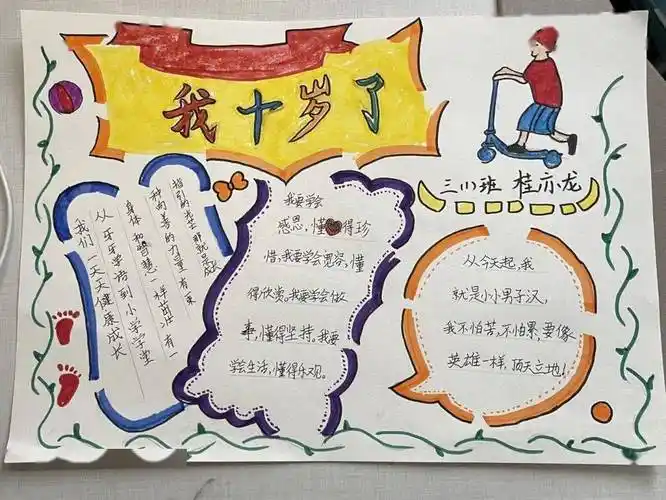 我十岁了
三(1)班 桂亦龙
我们一天天健康成长
从牙牙学语到小学学堂
身体和智慧一样茁壮 有一
种向善的力量 有束
指引的光芒 那就是
我要学会
感恩,懂得珍
惜,我要学会宽容,懂
得欣赏,我要学会做
事,懂得坚持,我要
学会生活,懂得乐观。
从今天起,我
就是小小男子汉,
我不怕苦,不怕累,要像
英雄一样,顶天立地!